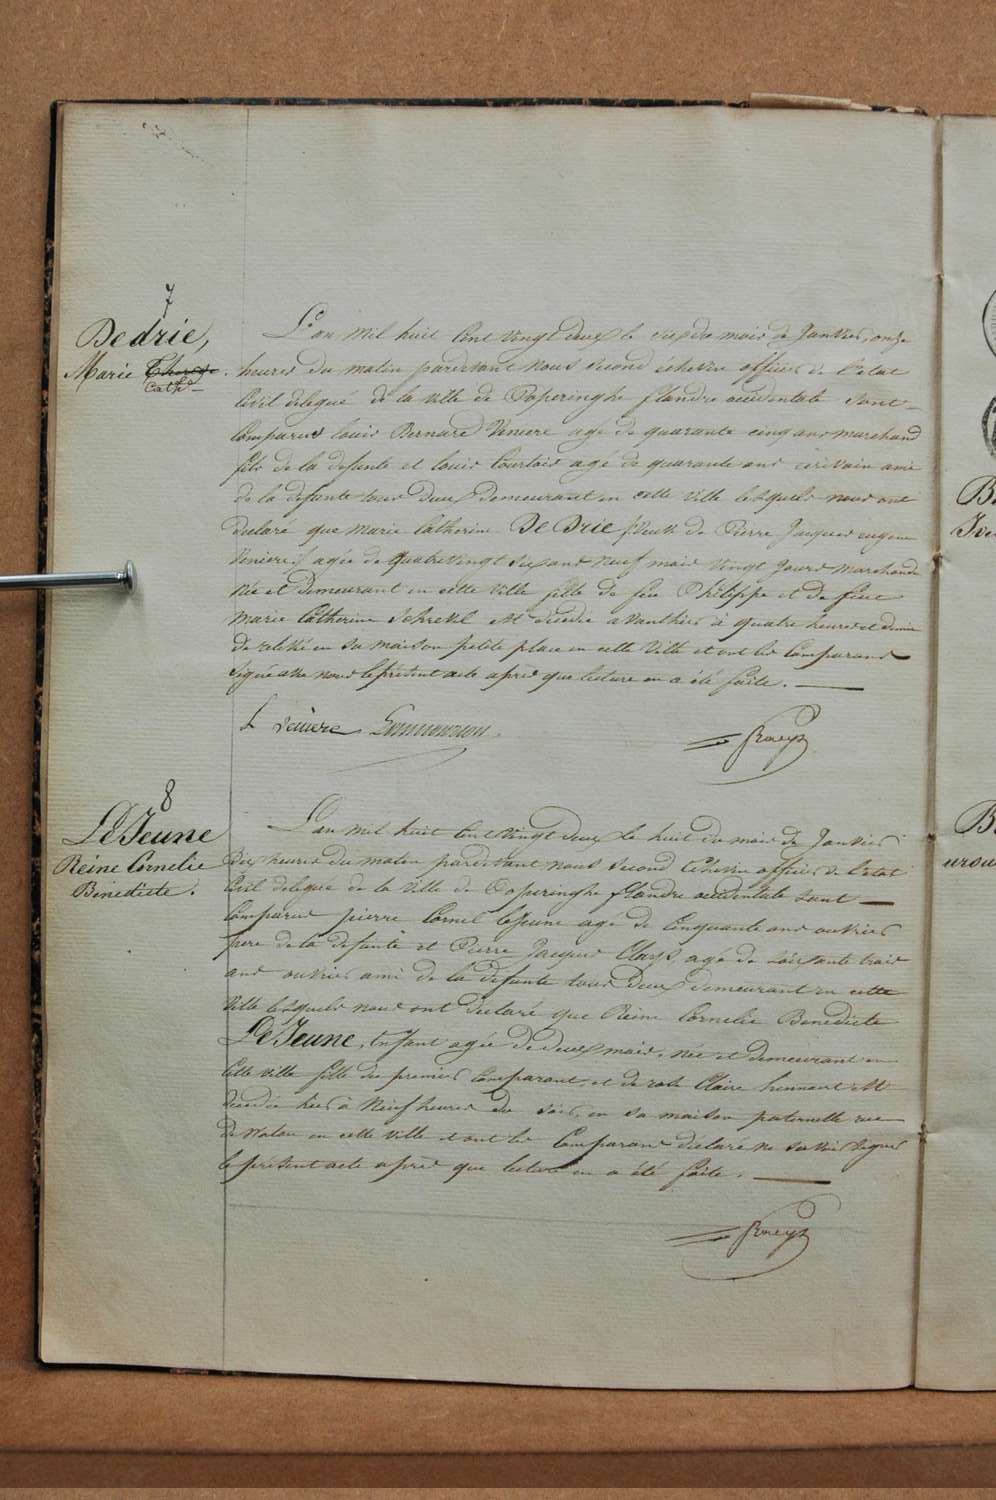 7
Dedrie,
Marie Therese.
Cath^e
L'an mil huit cent vingt deux le six du mois de Janvier, onze
heures du matin pardevant nous second échevin officier de l'etat
Civil delegué de la ville de Poperinghe flandre occidentale sont
Comparus louis Bernard Veniere agé de quarante cinq ans marchand
fils de la defunte et louis Courtois agé de quarante ans ecrivain ami
de la defunte tous deux demeurant en cette ville lesquels nous ont
declaré que marie Catherine De Drie (veuve de Pierre Jacques eugene
Veniere) agée de quatre vingt six ans neuf mois vingt jours marchande
née et demeurant en cette ville fille de feu Philippe et de feue
marie Catherine est decedée avanthier à quatre heures et demie
de relevée en sa maison petite place en cette ville et ont les Comparans
signé avec nous le présent acte après que lecture en a été faite.
L Veniere
8
LeJeune
Reine Cornelie
Benedicte.
L'an mil huit cent vingt deux le huit du mois de Janvier
dix heures du matin pardevant nous second Echevin officier de l'etat
Civil delegué de la ville de Poperinghe flandre occidentale sont
Comparus pierre Cornel leJeune agé de Cinquante ans ouvrier
pere de la defunte et Pierre Jacques agé de soixante trois
ans ouvrier ami de la defunte tous deux demeurant en cette
ville lesquels nous ont declaré que Reine Cornelie Benedicte
LeJeune, enfant agée de deux mois, née et demeurant en
cette ville fille du premier Comparant, et de Claire est
decedée hier à neuf heures du soir, en sa maison paternelle rue
de Watou en cette ville et ont les Comparans déclaré ne savoir signer
le présent acte après que lecture en a été faite.